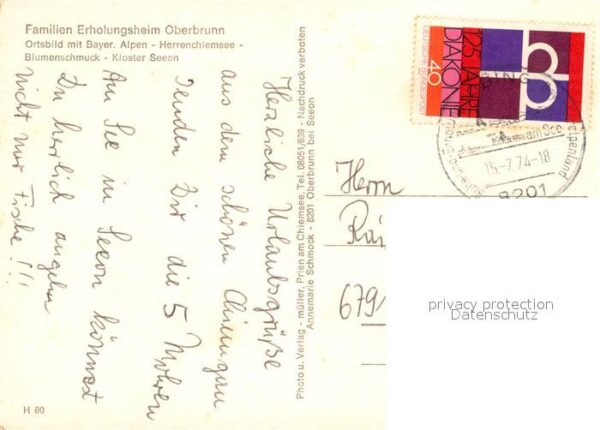 Familien Erholungsheim Oberbrunn
Ortsbild mit Bayer. Alpen - Herrenchiemsee -
Blumenschmuck - Kloster Seeon
Herzliche Urlaubsgrüße
aus dem schönen Chiemgau
senden Dir die 5 Mohren
Am See in Seeon könntest
Du herrlich angeln
nicht nur Fische!!!
H 80
Photo u. Verlag - müller, Prien am Chiemsee, Tel. 08051/639 - Nachdruck verboten
Annemarie Schmock - 8201 Oberbrunn bei Seeon
DEUTSCHE BUNDESPOST
125 JAHRE
DIAKONIE
40
am See
15.-7.74-18
8201
Herrn
Rai
679
privacy protection
Datenschutz